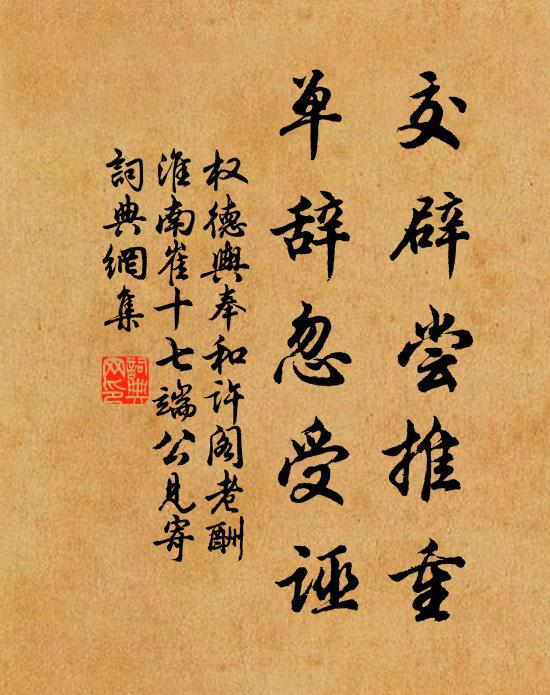 交辟尝推重
单辞忽受诬
权德舆奉和许阁老酬
淮南崔十七端公见寄
词典网集
词典网印